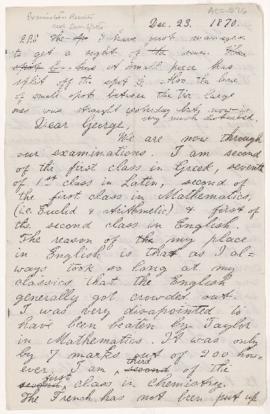 Dec. 23. 1870.
P.S. The I have just managed
to get a sight of the sun.
A small piece has
split off the spot Also the line
of small spots between the two large
ones was straight yesterday but now is
very much disturbed.
Dear George,
We are now through
our examinations. I am second
of the first class in Greek, seventh
of 1st class in Latin, second of
the first class in Mathematics,
(i.e. Euclid & Arithmetic) & first of
the second class in English.
The reason of the my place
in English is that as I al-
ways took so long at my
classics, that the English
generally got crowded out.
I was very disappointed is
have been beaten by Taylor
in Mathematics. It was only
by 7 marks out of 200 how-
ever. I am third of the
first class in Chemistry.
The French has not been put up